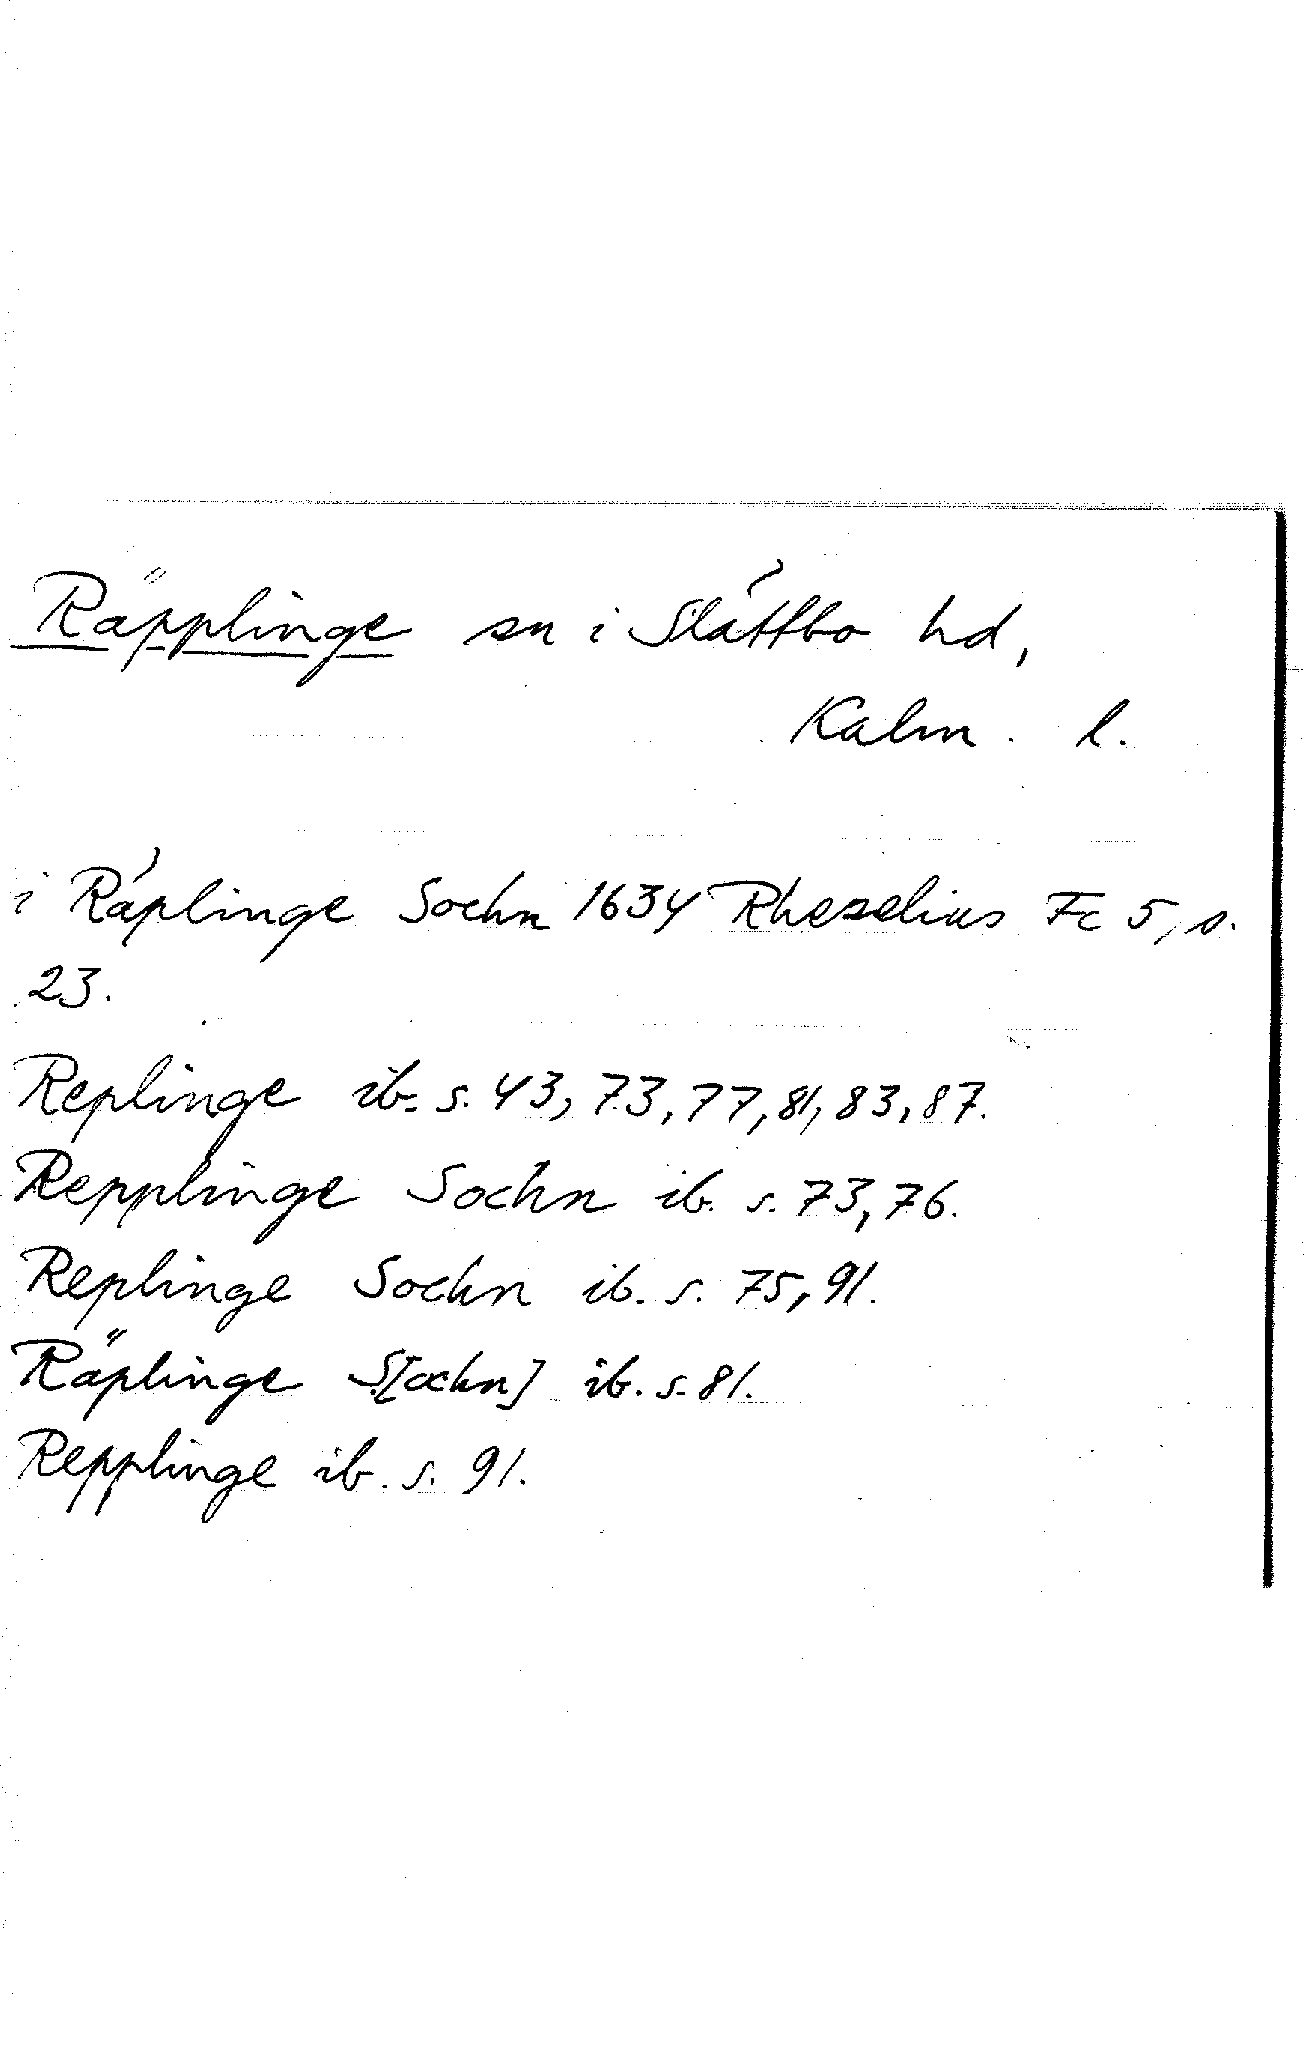 Räpplinge sn i Slättbo hd,
Kalm. l.
i Räplinge Sochn 1634 Rhezelius Fc 5, s.
23.
Replinge ib. s. 43, 73, 77, 81, 83, 87.
Repplinge Sochn ib. s. 73, 76.
Replinge Sochn ib. s. 75, 91.
Räplinge S[ochn] ib. s. 81.
Repplinge ib. s. 91.